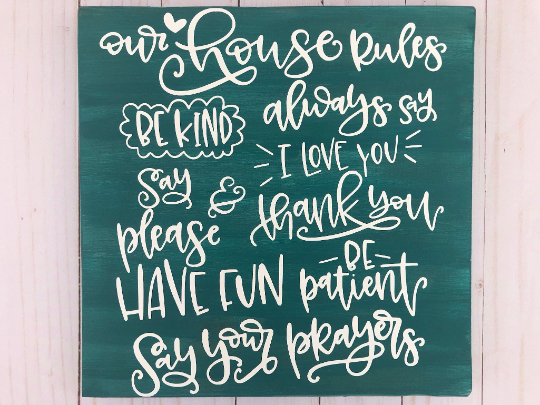 our house Rules
BE KIND
always say
I LOVE YOU
say please & thank you
HAVE FUN
BE patient
Say your prayers